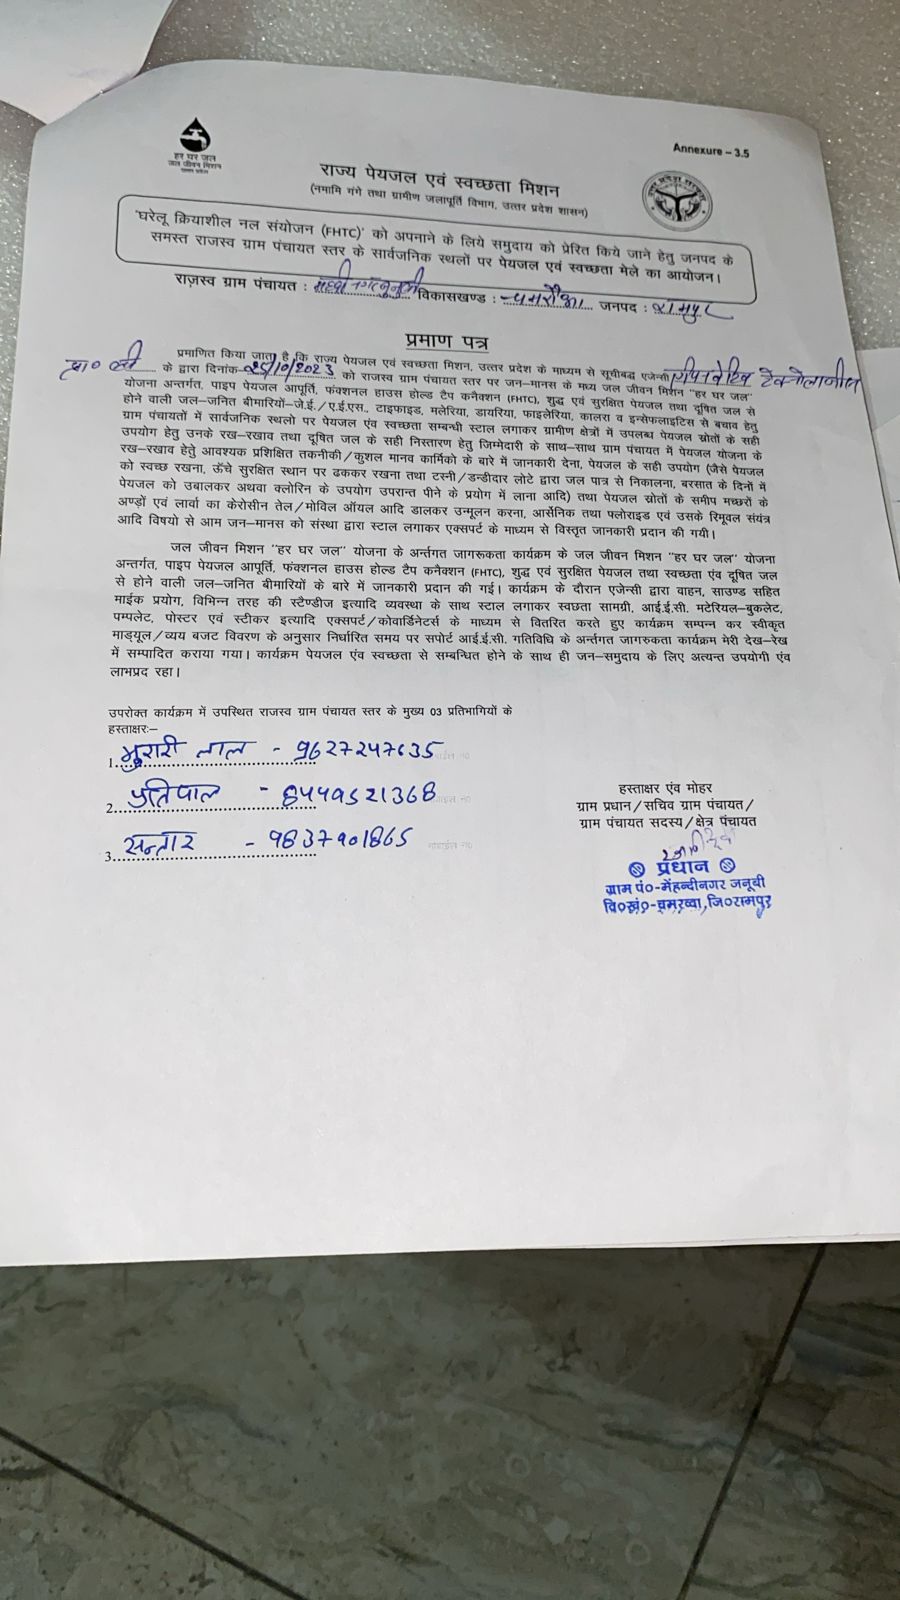 Annexure – 3.5
हर घर जल
जल जीवन मिशन
राज्य पेयजल एवं स्वच्छता मिशन
(नमामि गंगे तथा ग्रामीण जलापूर्ति विभाग, उत्तर प्रदेश शासन)
'घरेलू क्रियाशील नल संयोजन (FHTC)' को अपनाने के लिये समुदाय को प्रेरित किये जाने हेतु जनपद के
समस्त राजस्व ग्राम पंचायत स्तर के सार्वजनिक स्थलों पर पेयजल एवं स्वच्छता मेले का आयोजन।
राज़स्व ग्राम पंचायत : विकासखण्ड : चमरौआ जनपद : रामपुर
प्रमाण पत्र
प्रमाणित किया जाता है कि राज्य पेयजल एवं स्वच्छता मिशन, उत्तर प्रदेश के माध्यम से सूचीबद्ध एजेन्सी
के द्वारा दिनांक 25/10/2023 को राजस्व ग्राम पंचायत स्तर पर जन–मानस के मध्य जल जीवन मिशन "हर घर जल"
योजना अन्तर्गत, पाइप पेयजल आपूर्ति, फंक्शनल हाउस होल्ड टैप कनैक्शन (FHTC), शुद्ध एवं सुरक्षित पेयजल तथा दूषित जल से
होने वाली जल–जनित बीमारियों–जे.ई./ए.ई.एस., टाइफाइड, मलेरिया, डायरिया, फाइलेरिया, कालरा व इन्सेफलाइटिस से बचाव हेतु
ग्राम पंचायतों में सार्वजनिक स्थलो पर पेयजल एंव स्वच्छता सम्बन्धी स्टाल लगाकर ग्रामीण क्षेत्रों में उपलब्ध पेयजल स्रोतों के सही
उपयोग हेतु उनके रख–रखाव तथा दूषित जल के सही निस्तारण हेतु जिम्मेदारी के साथ–साथ ग्राम पंचायत में पेयजल योजना के
रख–रखाव हेतु आवश्यक प्रशिक्षित तकनीकी/कुशल मानव कार्मिको के बारे में जानकारी देना, पेयजल के सही उपयोग (जैसे पेयजल
को स्वच्छ रखना, ऊँचे सुरक्षित स्थान पर ढककर रखना तथा टस्नी/डन्डीदार लोटे द्वारा जल पात्र से निकालना, बरसात के दिनों में
पेयजल को उबालकर अथवा क्लोरिन के उपयोग उपरान्त पीने के प्रयोग में लाना आदि) तथा पेयजल स्रोतों के समीप मच्छरों के
अण्ड़ों एवं लार्वा का केरोसीन तेल/मोविल ऑयल आदि डालकर उन्मूलन करना, आर्सेनिक तथा फ्लोराइड एवं उसके रिमूवल संयंत्र
आदि विषयो से आम जन–मानस को संस्था द्वारा स्टाल लगाकर एक्सपर्ट के माध्यम से विस्तृत जानकारी प्रदान की गयी।
जल जीवन मिशन "हर घर जल" योजना के अर्न्तगत जागरूकता कार्यक्रम के जल जीवन मिशन "हर घर जल" योजना
अन्तर्गत, पाइप पेयजल आपूर्ति, फंक्शनल हाउस होल्ड टैप कनैक्शन (FHTC), शुद्ध एवं सुरक्षित पेयजल तथा स्वच्छता एंव दूषित जल
से होने वाली जल–जनित बीमारियों के बारे में जानकारी प्रदान की गई। कार्यक्रम के दौरान एजेन्सी द्वारा वाहन, साउण्ड सहित
माईक प्रयोग, विभिन्न तरह की स्टैण्डीज इत्यादि व्यवस्था के साथ स्टाल लगाकर स्वछता सामग्री, आई.ई.सी. मटेरियल–बुकलेट,
पम्पलेट, पोस्टर एवं स्टीकर इत्यादि एक्सपर्ट/कोवार्डिनेटर्स के माध्यम से वितरित करते हुए कार्यक्रम सम्पन्न कर स्वीकृत
माड्यूल/व्यय बजट विवरण के अनुसार निर्धारित समय पर सपोर्ट आई.ई.सी. गतिविधि के अर्न्तगत जागरुकता कार्यक्रम मेरी देख–रेख
में सम्पादित कराया गया। कार्यक्रम पेयजल एंव स्वच्छता से सम्बन्धित होने के साथ ही जन–समुदाय के लिए अत्यन्त उपयोगी एंव
लाभप्रद रहा।
उपरोक्त कार्यक्रम में उपस्थित राजस्व ग्राम पंचायत स्तर के मुख्य 03 प्रतिभागियों के
हस्ताक्षरः–
1. मुरारी लाल - 9627247635
2. प्रतिपाल - 8449521368
3. सन्तार - 9837901865
हस्ताक्षर एंव मोहर
ग्राम प्रधान/सचिव ग्राम पंचायत/
ग्राम पंचायत सदस्य/क्षेत्र पंचायत
प्रधान
ग्राम पं०-मेंहन्दीनगर जनूबी
वि०खं०-चमरव्वा,जि०रामपुर